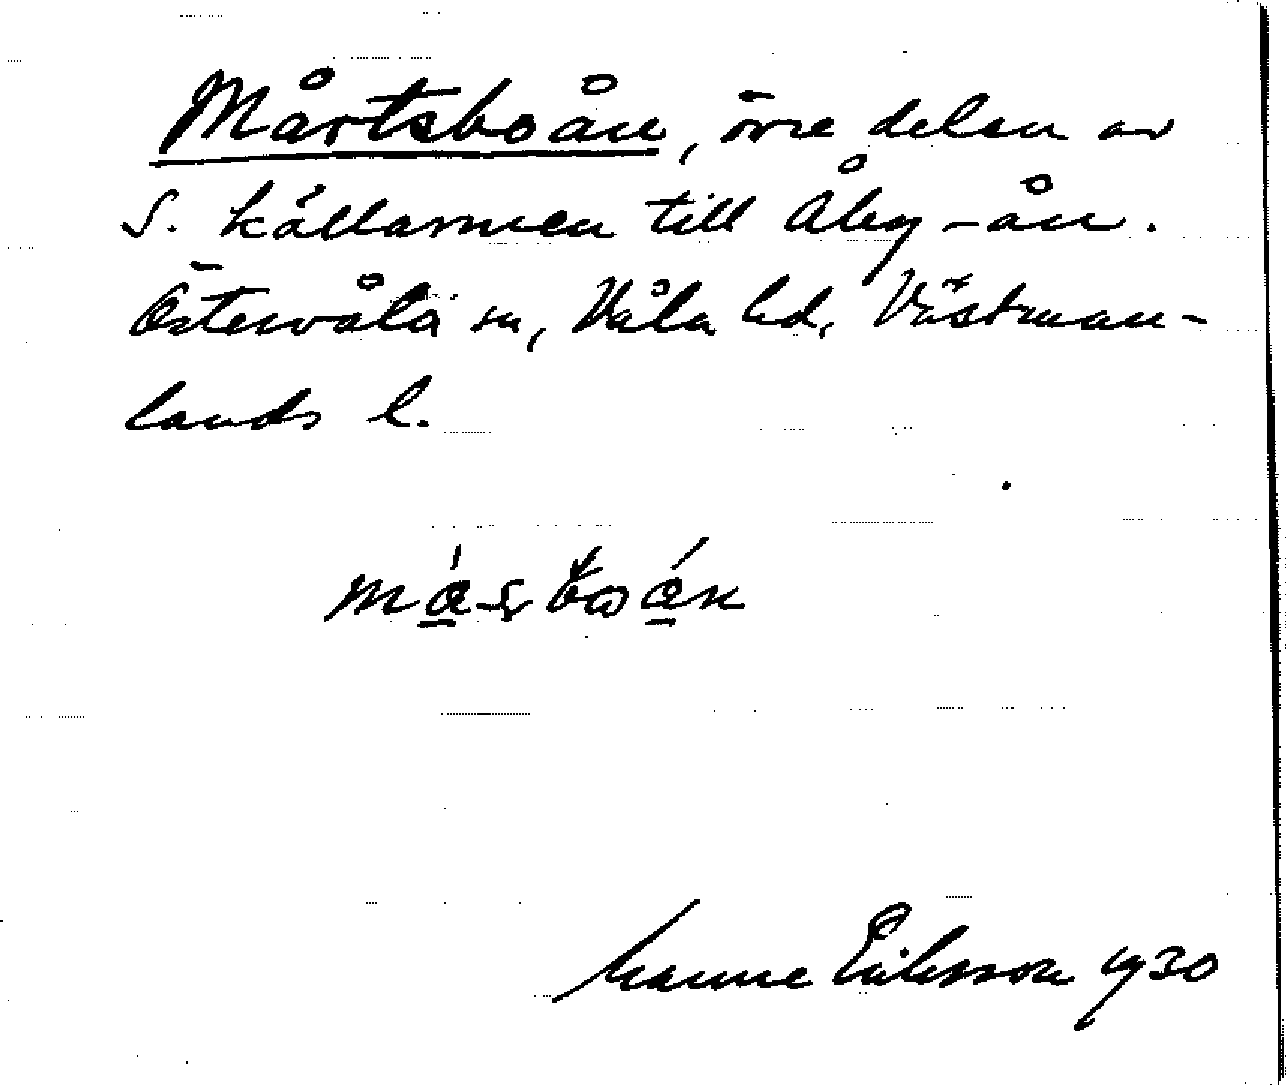 Mårtsboån, övre delen av
S. källarmen till Åby-ån.
Östervåla sn, Våla hd, Västman-
lands l.
Manne Eriksson 1930